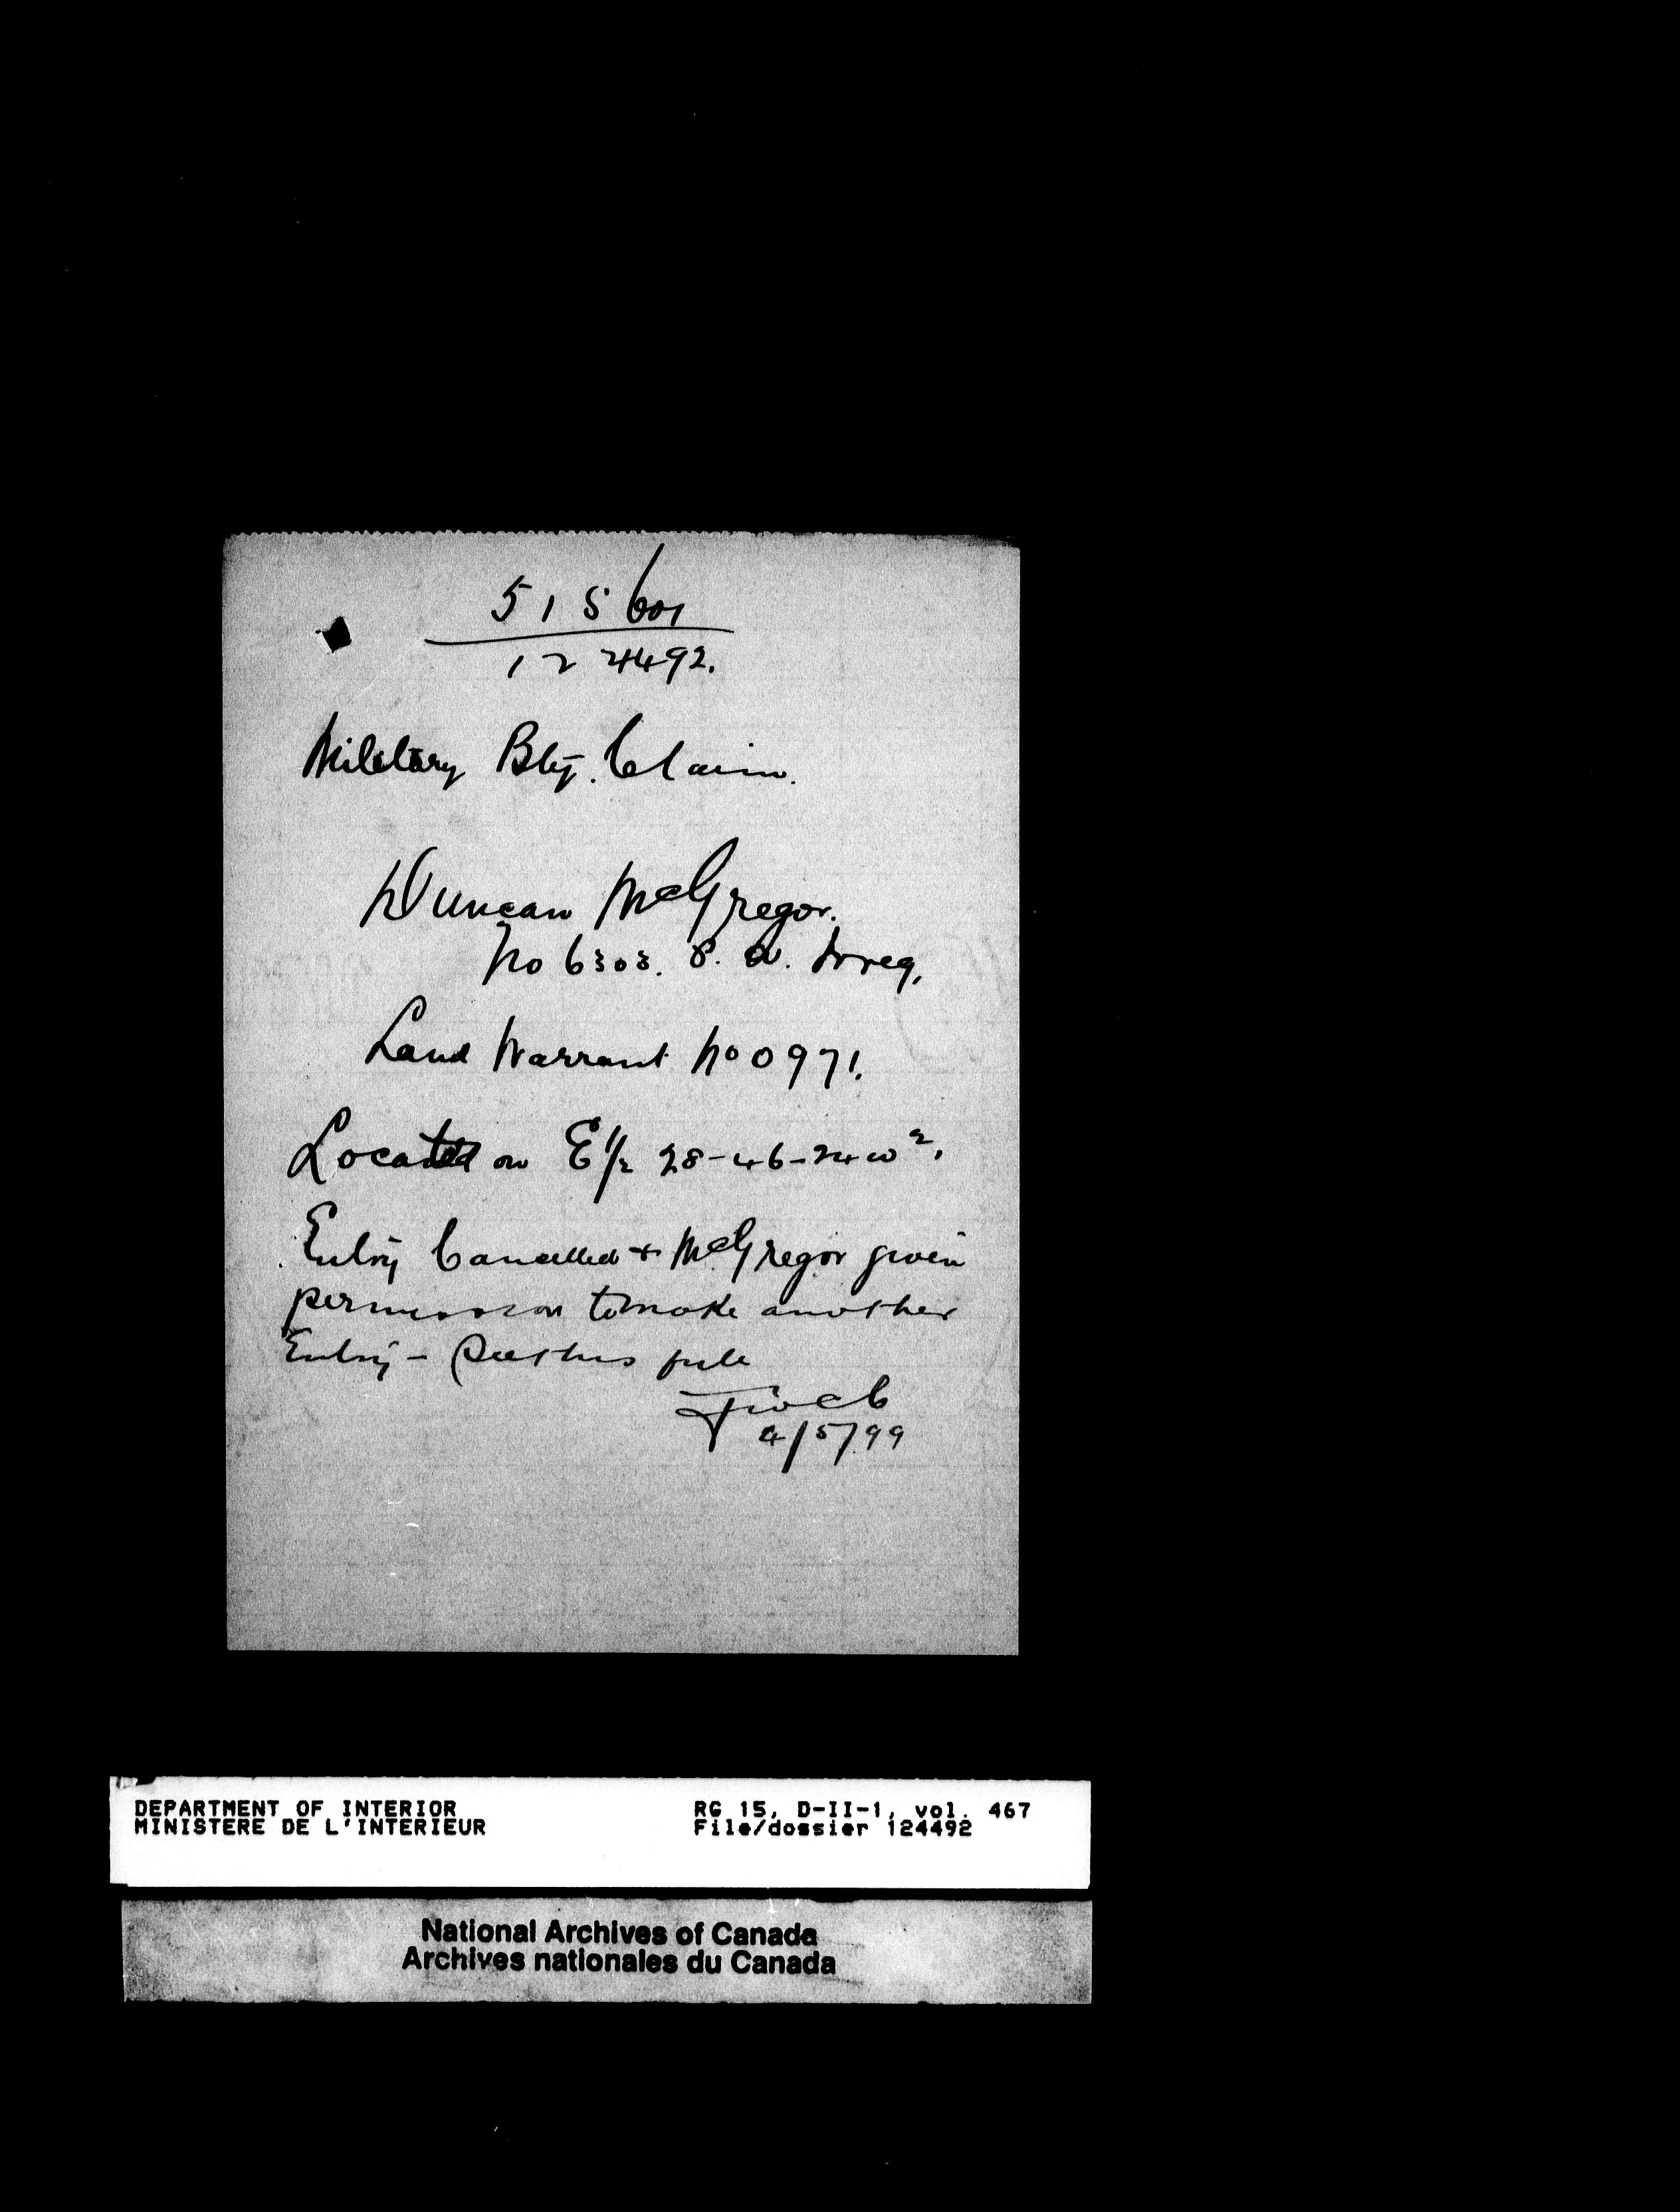 515601
124492.
Military Bty. Claim.
Duncan McGregor.
No 6303. P. A. Irreg.
Land Warrant No 0971.
Located on E 1/2 28-46-24 w 2.
Entry Cancelled + McGregor given
permission to make another
Entry - See this file
4/5/99
DEPARTMENT OF INTERIOR
MINISTERE DE L'INTERIEUR
RG 15, D-II-1, vol. 467
File/dossier 124492
National Archives of Canada
Archives nationales du Canada